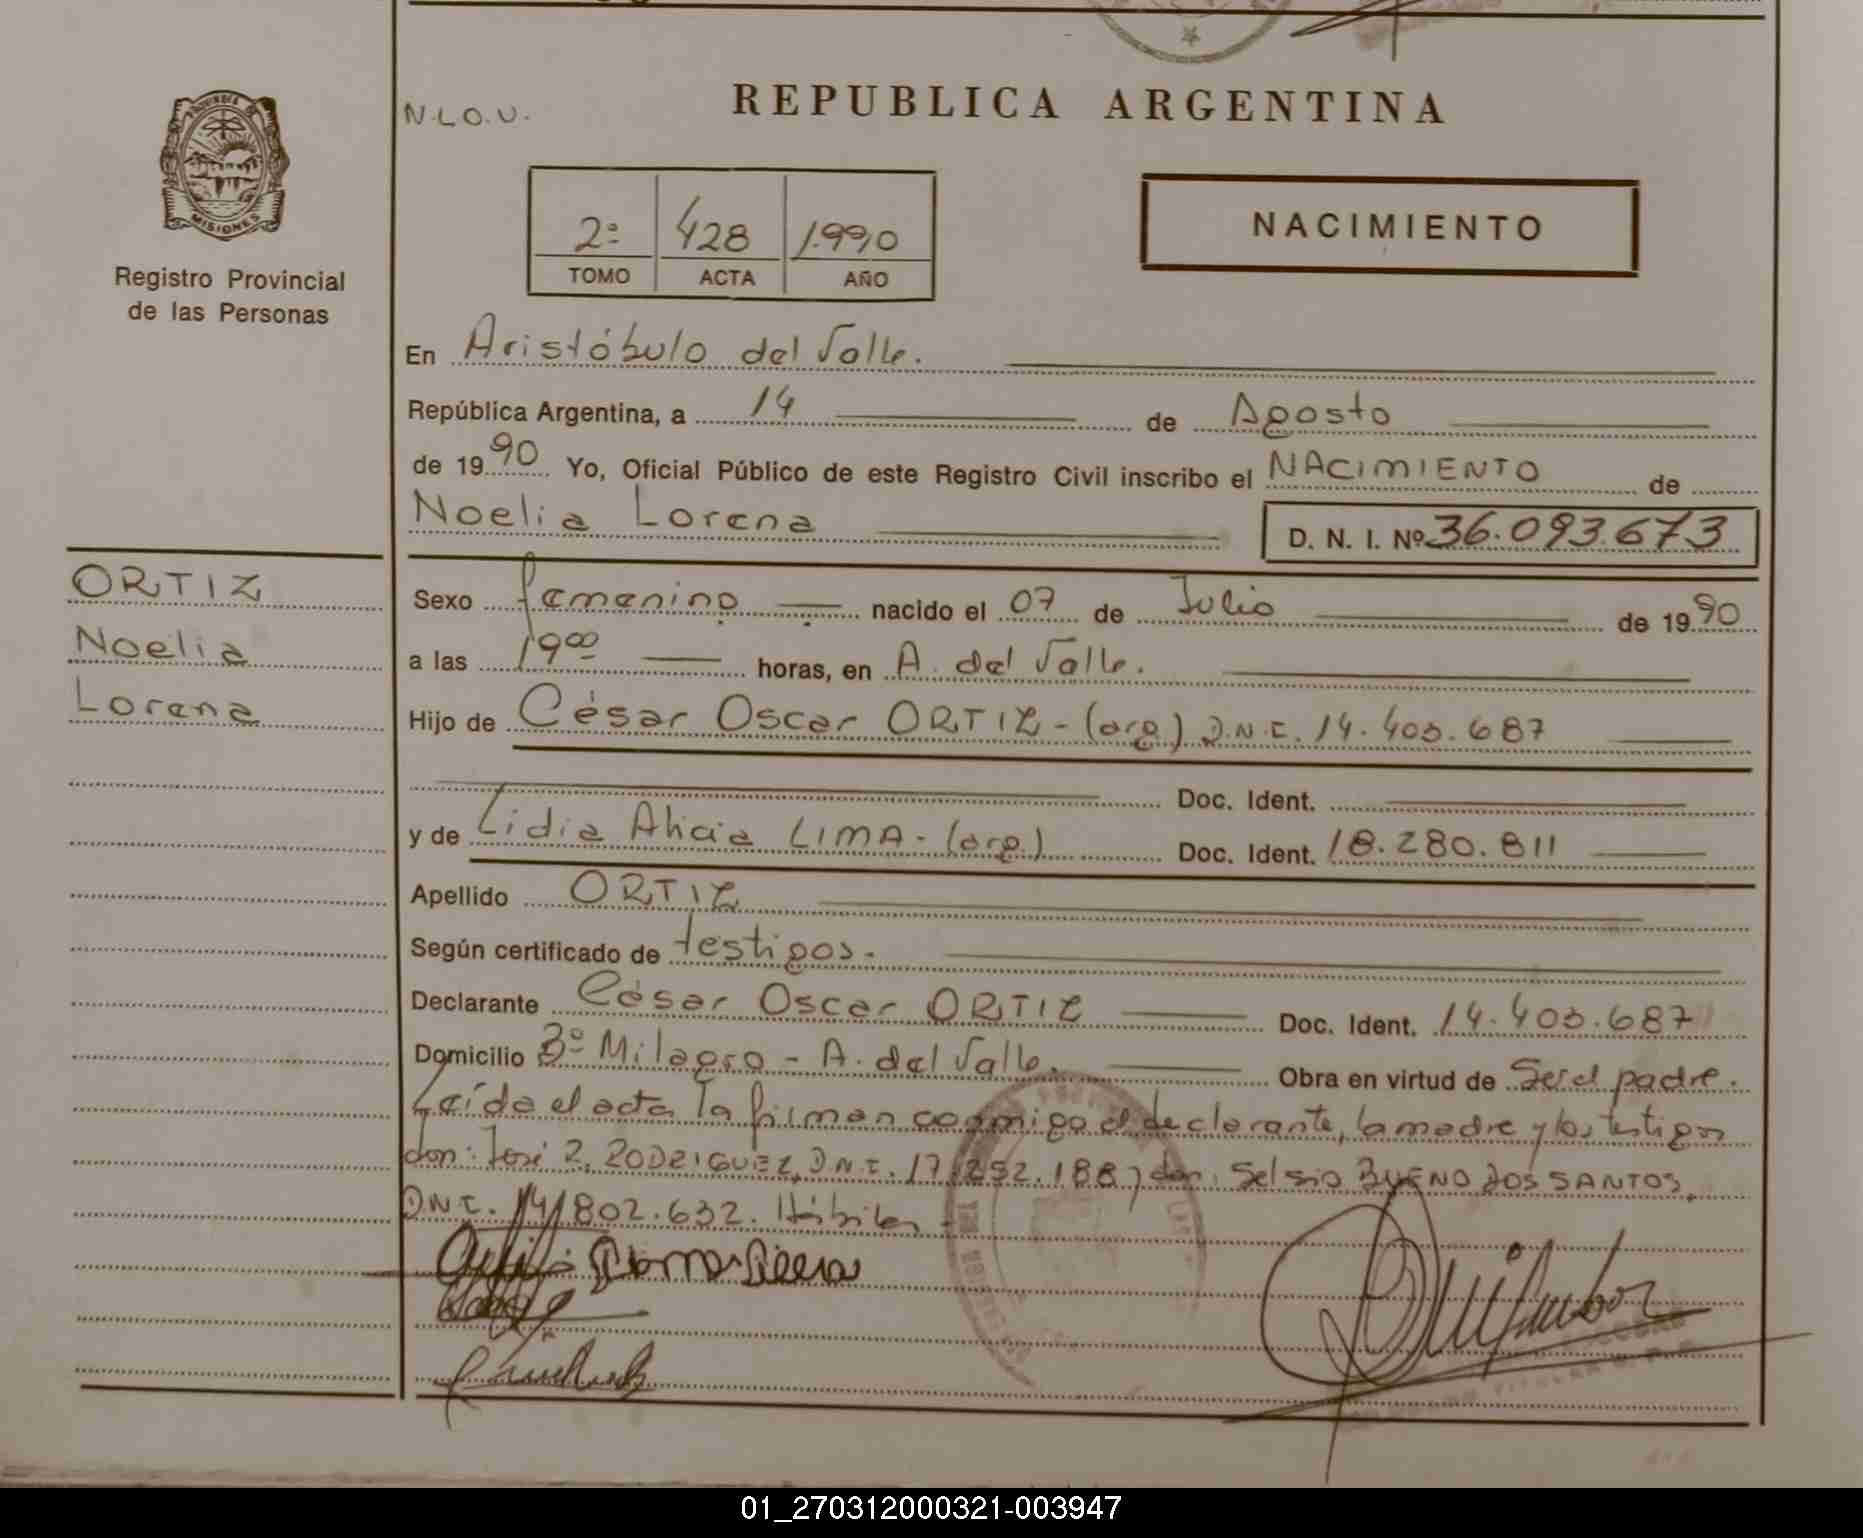 PROVINCIA DE
MISIONES
Registro Provincial
de las Personas
N.L.O.U.
REPUBLICA ARGENTINA
2º 428 1.990
TOMO ACTA AÑO
NACIMIENTO
En Aristóbulo del Valle.
República Argentina, a 14 de Agosto
de 1990 Yo, Oficial Público de este Registro Civil inscribo el NACIMIENTO de
Noelia Lorena D. N. I. Nº 36.093.673
ORTIZ
Noelia
Lorena
Sexo femenino nacido el 07 de Julio de 1990
a las 19⁰⁰ horas, en A. del Valle.
Hijo de César Oscar ORTIZ - (arg) D.N.I. 14.403.687
Doc. Ident.
y de Lidia Alicia LIMA - (arg.) Doc. Ident. 18.280.811
Apellido ORTIZ
Según certificado de testigos.
Declarante César Oscar ORTIZ Doc. Ident. 14.403.687
Domicilio Bº Milagro - A. del Valle. Obra en virtud de Ser el padre.
Leída el acta la firman conmigo el declarante, la madre y los testigos
don: José R. RODRIGUEZ, D.N.I. 17.252.188 y don: Selsio BUENO DOS SANTOS,
D.N.I. 14.802.632. Hábiles -
01_270312000321-003947